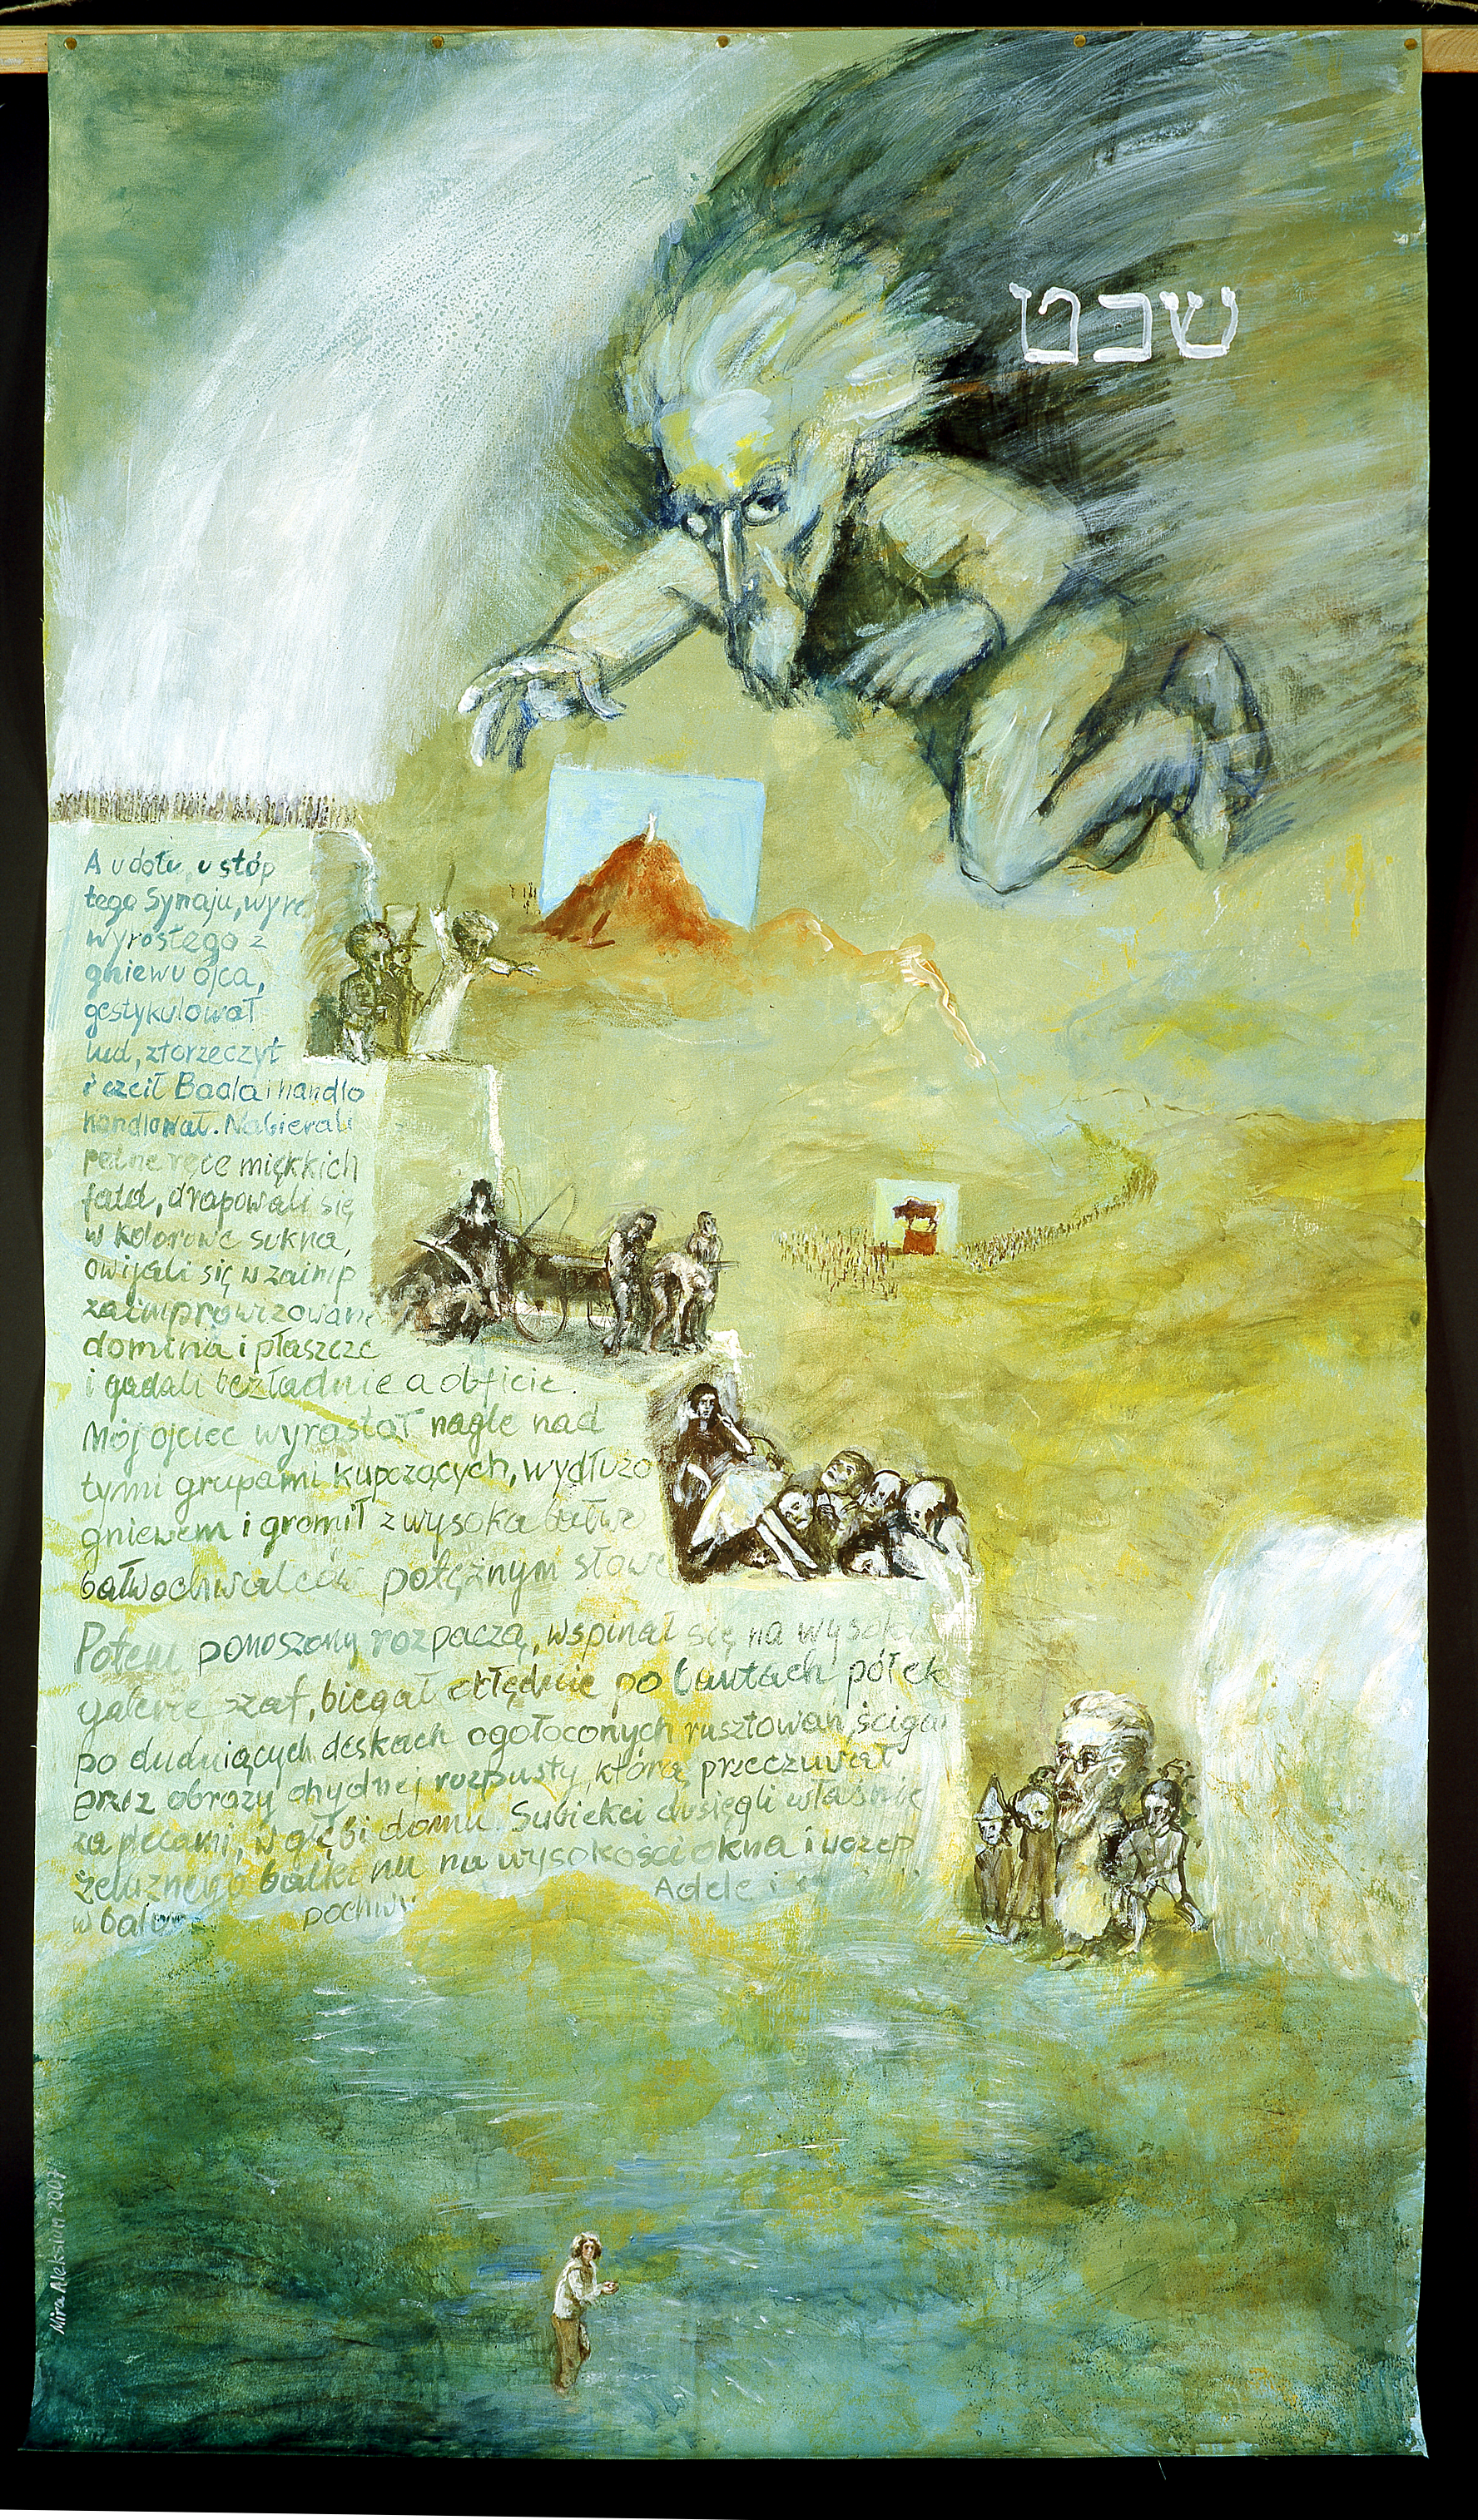 שבט
A u dołu, u stóp
tego Synaju, wyro
wyrosłego z
gniewu ojca,
gestykulował
lud, złorzeczył
i czcił Baala i handlo
handlował. Nabierali
pełne ręce miękkich
fałd, drapowali się
w kolorowe sukna,
owijali się w zaimp
zaimprowizowane
domina i płaszcze
i gadali bezładnie a obficie.
Mój ojciec wyrastał nagle nad
tymi grupami kupczących, wydłużo
gniewem i gromił z wysoka bałwo
bałwochwalców potężnym słowe
Potem ponoszony rozpaczą, wspinał się na wysokie
galerie szaf, biegał obłędnie po bantach półek
po dudniących deskach ogołoconych rusztowań, ściga
przez obrazy ohydnej rozpusty, którą przeczuwał
za plecami, w głębi domu. Subiekci dosięgli właśnie
żelaznego balkonu na wysokości okna i wczep
w balus pochwy Adelę i
Mira Aleksiun 2007